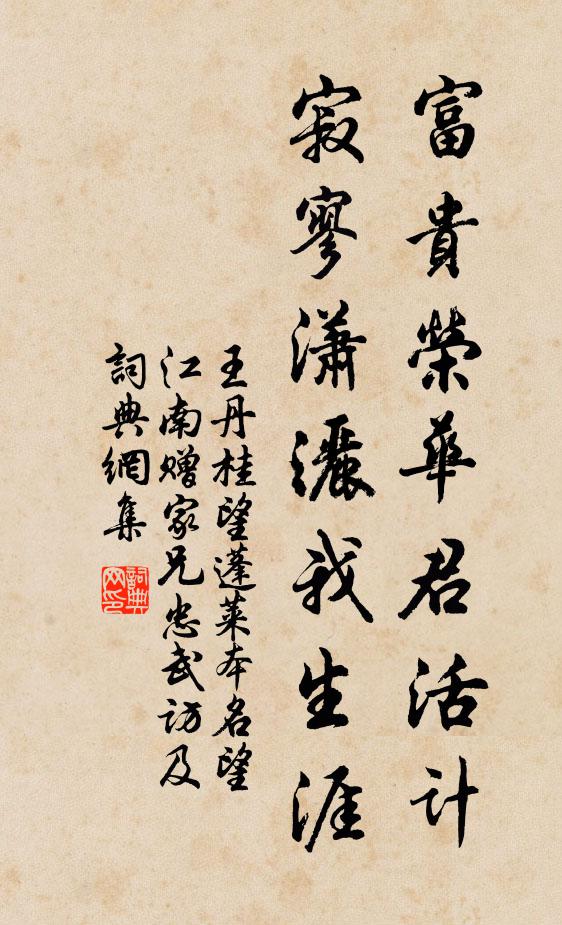 富貴榮華君活計
寂寥瀟灑我生涯
王丹桂望蓬萊本名望
江南赠家兄忠武访及
詞典網集
詞典网印